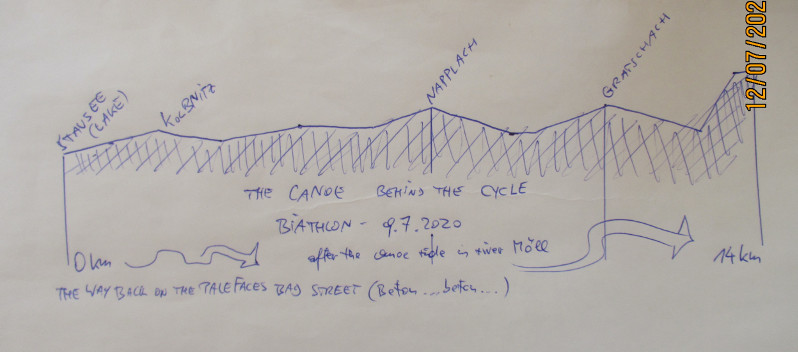 STAUSEE
(LAKE)
KOLBNITZ
NAPPLACH
GRATSCHACH
12/07/202
THE CANOE BEHIND THE CYCLE
BIATHLON - 9.7.2020
after the canoe ride in river Möll
0 km
14 km
THE WAY BACK ON THE PALEFACES BAD STREET (Beton...beton...)